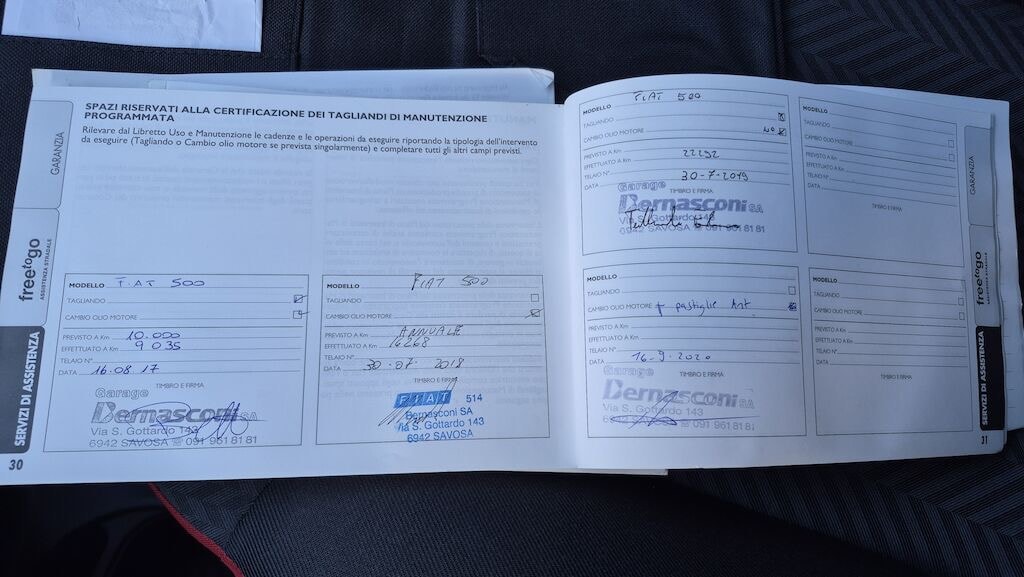 SPAZI RISERVATI ALLA CERTIFICAZIONE DEI TAGLIANDI DI MANUTENZIONE
PROGRAMMATA
Rilevare dal Libretto Uso e Manutenzione le cadenze e le operazioni da eseguire riportando la tipologia dell'intervento
da eseguire (Tagliando o Cambio olio motore se prevista singolarmente) e completare tutti gli altri campi previsti.
GARANZIA
freetogo
ASSISTENZA STRADALE
SERVIZI DI ASSISTENZA
30
MODELLO FIAT 500
TAGLIANDO
CAMBIO OLIO MOTORE
PREVISTO A Km 10.000
EFFETTUATO A Km 9035
TELAIO N°
DATA 16.08.17
TIMBRO E FIRMA
Garage
Bernasconi SA
Via S. Gottardo 143
6942 SAVOSA ☎ 091 961 81 81
MODELLO FIAT 500
TAGLIANDO
CAMBIO OLIO MOTORE
PREVISTO A Km ANNUALE
EFFETTUATO A Km 16268
TELAIO N°
DATA 30.07.2018
TIMBRO E FIRMA
FIAT 514
Bernasconi SA
Via S. Gottardo 143
6942 SAVOSA
MODELLO FIAT 500
TAGLIANDO
CAMBIO OLIO MOTORE
PREVISTO A Km
EFFETTUATO A Km 22292
TELAIO N°
DATA 30-7-2019
TIMBRO E FIRMA
Garage
Bernasconi SA
Via S. Gottardo 143
6942 SAVOSA ☎ 091 961 81 81
MODELLO
TAGLIANDO
CAMBIO OLIO MOTORE + pastiglie Ant.
PREVISTO A Km
EFFETTUATO A Km
TELAIO N°
DATA 16-9-2020
TIMBRO E FIRMA
Garage
Bernasconi SA
Via S. Gottardo 143
6942 SAVOSA ☎ 091 961 81 81
MODELLO
TAGLIANDO
CAMBIO OLIO MOTORE
PREVISTO A Km
EFFETTUATO A Km
TELAIO N°
DATA
TIMBRO E FIRMA
MODELLO
TAGLIANDO
CAMBIO OLIO MOTORE
PREVISTO A Km
EFFETTUATO A Km
TELAIO N°
DATA
TIMBRO E FIRMA
GARANZIA
freetogo
SERVIZI DI ASSISTENZA
31